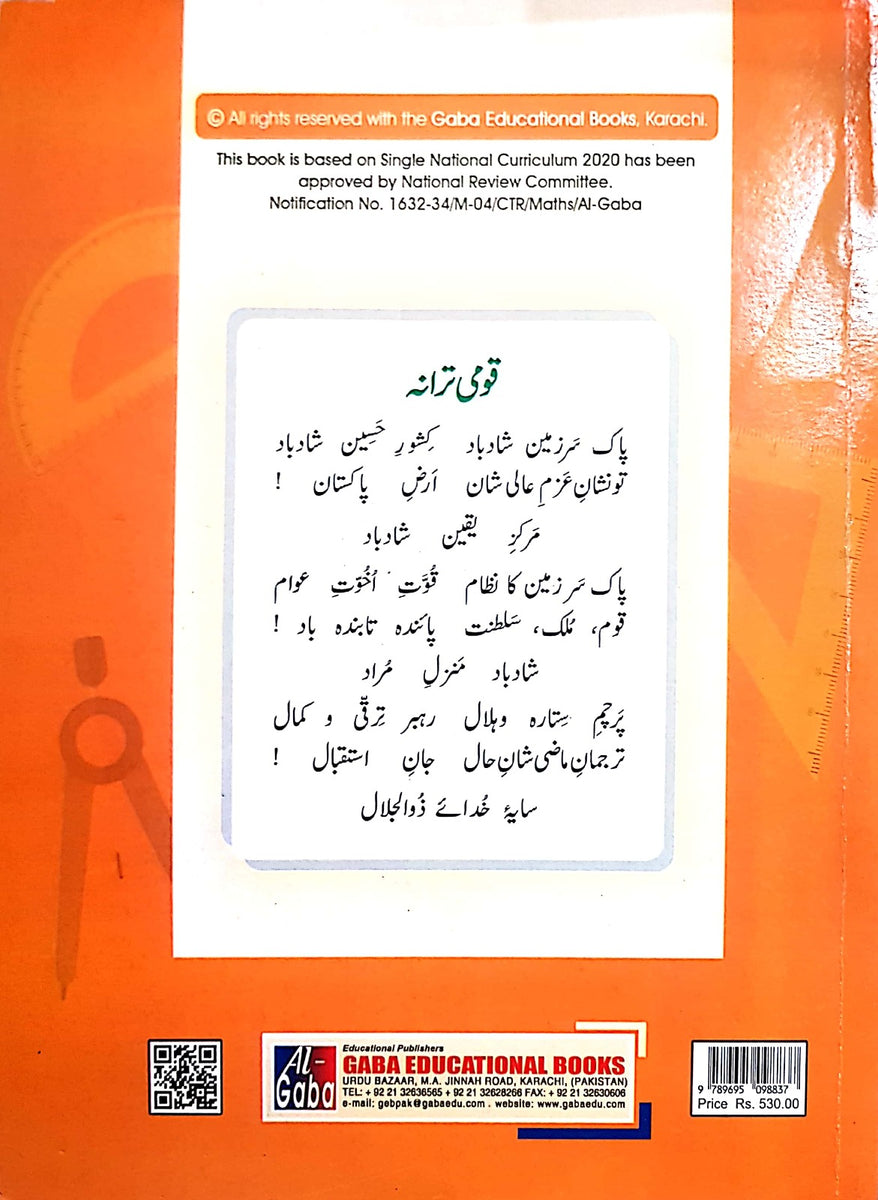 © All rights reserved with the Gaba Educational Books, Karachi.
This book is based on Single National Curriculum 2020 has been
approved by National Review Committee.
Notification No. 1632-34/M-04/CTR/Maths/Al-Gaba
قومی ترانہ
پاک سَرزمین شادباد کِشورِ حَسِین شادباد
تونشانِ عَزمِ عالی شان اَرضِ پاکستان !
مَرکزِ یقین شادباد
پاک سَرزمین کا نظام قُوَّتِ اُخُوَّتِ عوام
قوم، مُلک، سَلطنت پائندہ تابندہ باد !
شادباد مَنزلِ مُراد
پَرچمِ سِتارہ وہلال رہبرِ تِرقّی و کمال
ترجمانِ ماضی شانِ حال جانِ استقبال !
سایۂ خُدائے ذُوالجلال
Al-Gaba
Educational Publishers
GABA EDUCATIONAL BOOKS
URDU BAZAAR, M.A. JINNAH ROAD, KARACHI, (PAKISTAN)
TEL: + 92 21 32636565 + 92 21 32628266 FAX: + 92 21 32630606
e-mail: gebpak@gabaedu.com . website: www.gabaedu.com
9 789695 098837
Price Rs. 530.00